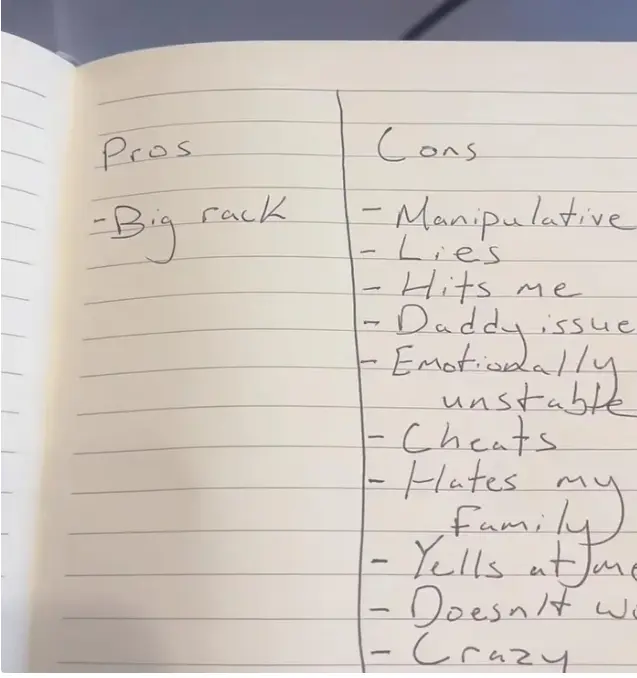 Pros
Cons
- Big rack
- Manipulative
- Lies
- Hits me
- Daddy issue
- Emotionally
unstable
- Cheats
- Hates my
Family
- Yells at me
- Doesn't
- Crazy